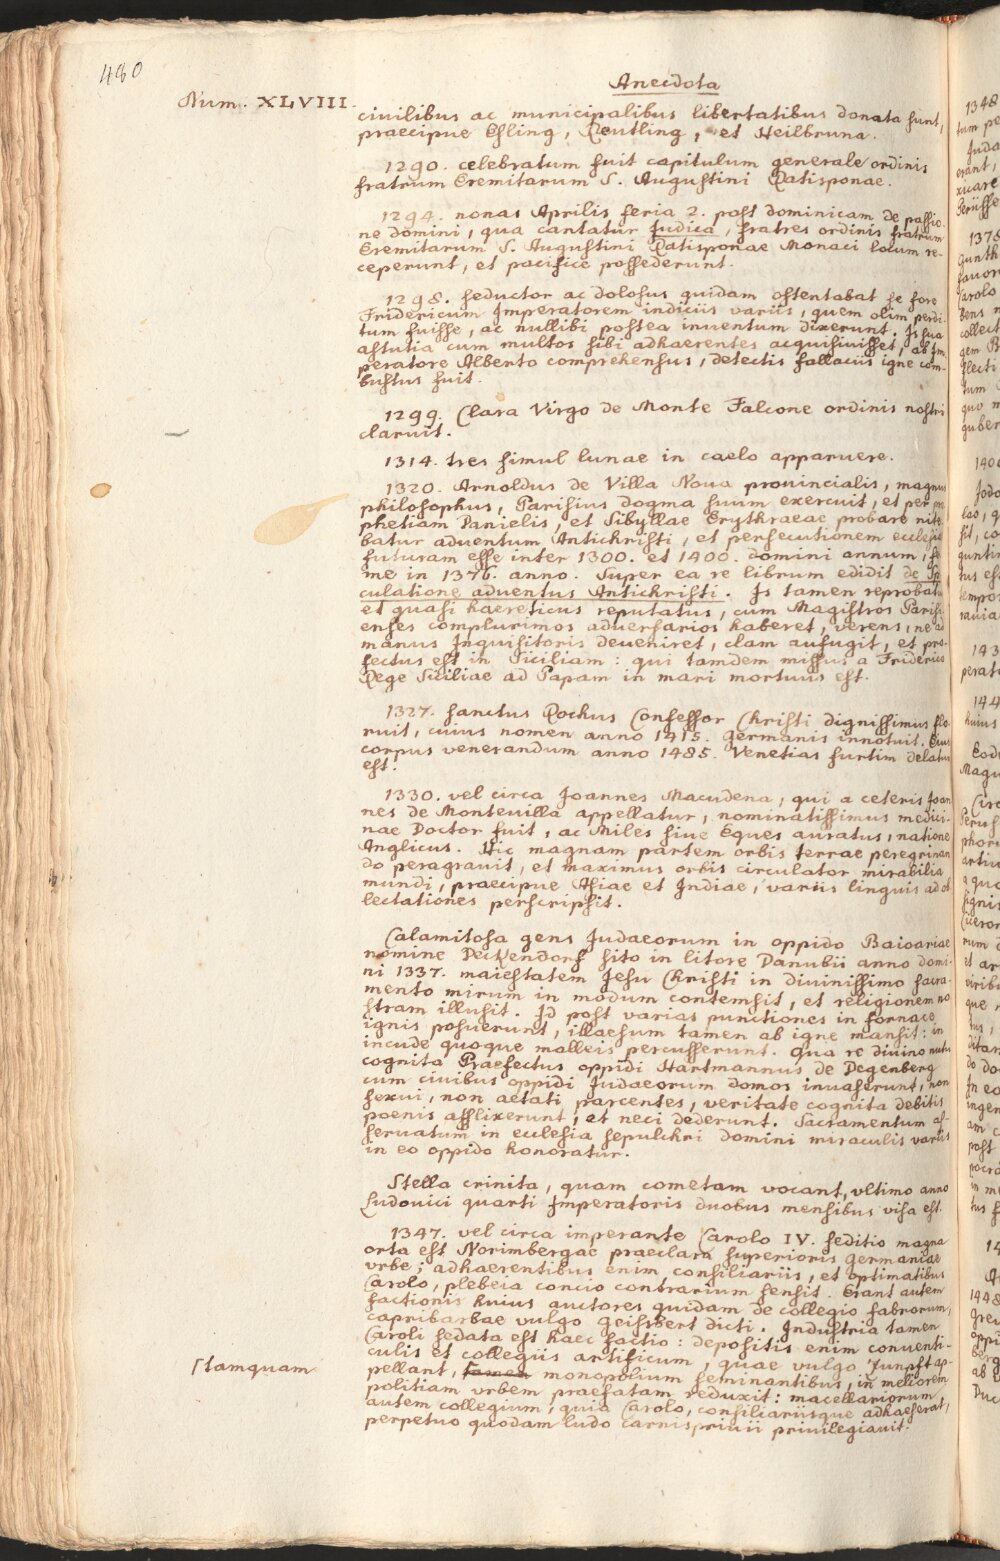 480
Anecdota
Num. XLVIII.
ciuilibus ac municipalibus libertatibus donata sunt,
praecipue Esling, Reutling, et Heilbruna.
1290. celebratum fuit capitulum generale ordinis
fratrum Eremitarum S. Augustini Ratisponae.
1294. nonas Aprilis feria 2. post dominicam de passio-
ne domini, qua cantatur Judica, fratres ordinis fratrum
Eremitarum S. Augustini Ratisponae Monaci locum re-
ceperunt, et pacifice possederunt.
1298. seductor ac dolosus quidam ostentabat se fore
Fridericum Imperatorem indiciis variis, quem olim perdi-
tum fuisse, ac nullibi postea inuentum dixerunt. Is sua
astutia cum multos sibi adhaerentes acquisiuisset, ab Im-
peratore Alberto comprehensus, detectis fallaciis igne com-
bustus fuit.
1299. Clara Virgo de Monte Falcone ordinis nostri
claruit.
1314. tres simul lunae in caelo apparuere.
1320. Arnoldus de Villa Noua prouincialis, magnus
philosophus, Parisius dogma suum exercuit, et per pro
phetiam Danielis, et Sibyllae Erythraeae probare nite
batur aduentum Antichristi, et persecutionem ecclesie
futuram esse inter 1300. et 1400. domini annum, fe
me in 1376. anno. Super ea re librum edidit de Spe
culatione aduentus Antichristi. Is tamen reprobatus
et quasi haereticus reputatus, cum Magistros Parisi
enses complurimos aduersarios haberet, verens, ne ad
manus Inquisitoris deueniret, clam aufugit, et pro-
fectus est in Siciliam: qui tamdem missus a Friderico
Rege Siciliae ad Papam in mari mortuus est.
1327. sanctus Rochus Confessor Christi dignissimus flo
ruit, cuius nomen anno 1415. Germanis innotuit. Eius
corpus venerandum anno 1485. Venetias furtim delatum
est.
1330. vel circa Joannes Macudena, qui a ceteris Joan
nes de Monteuilla appellatur, nominatissimus medici-
nae Doctor fuit, ac Miles siue Eques auratus, natione
Anglicus. Hic magnam partem orbis terrae peregrinan
do peragrauit, et maximus orbis circulator mirabilia
mundi, praecipue Asiae et Indiae, variis linguis ad ob
lectationes perscripsit.
Calamitosa gens Judaeorum in oppido Baioariae
nomine Deckendorf sito in litore Danubii anno domi-
ni 1337. maiestatem Jesu Christi in diuinissimo sacra-
mento mirum in modum contemsit, et religionem no
stram illusit. Id post varias punctiones in fornace
ignis posuerunt, illaesum tamen ab igne mansit: in
incude quoque malleis percusserunt. Qua re diuino nutu
cognita Praefectus oppidi Hartmannus de Degenberg
cum ciuibus oppidi Judaeorum domos inuaserunt, non
sexui, non aetati parcentes, veritate cognita debitis
poenis afflixerunt, et neci dederunt. Sacramentum as-
seruatum in ecclesia sepulchri domini miraculis variis
in eo oppido honoratur.
Stella crinita, quam cometam vocant, vltimo anno
Ludouici quarti Imperatoris duobus mensibus visa est.
1347. vel circa imperante Carolo IV. seditio magna
orta est Norimbergae praeclara superioris Germaniae
vrbe; adhaerentibus enim consiliariis, et optimatibus
Carolo, plebeia concio contrarium sensit. Erant autem
factionis huius auctores quidam de collegio fabrorum,
capribarbae vulgo Geispert dicti. Industria tamen
Caroli sedata est haec factio: depositis enim conuenti-
culis et collegiis artificum, quae vulgo Zunfft ap-
pellant, tamen monopolium seminantibus, in meliorem
⌈tamquam
politiam vrbem praefatam reduxit: macellariorum
autem collegium, quia Carolo, consiliariisque adhaeserat,
perpetuo quodam ludo carnispriuii priuilegiauit.